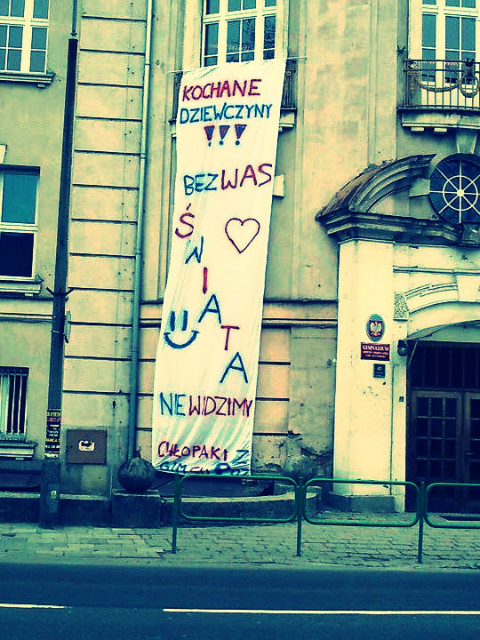 KOCHANE
DZIEWCZYNY
!!!
BEZ WAS
ŚWIATA
NE WIDZIMY
CHŁOPAKI Z
GIMNAZJUM